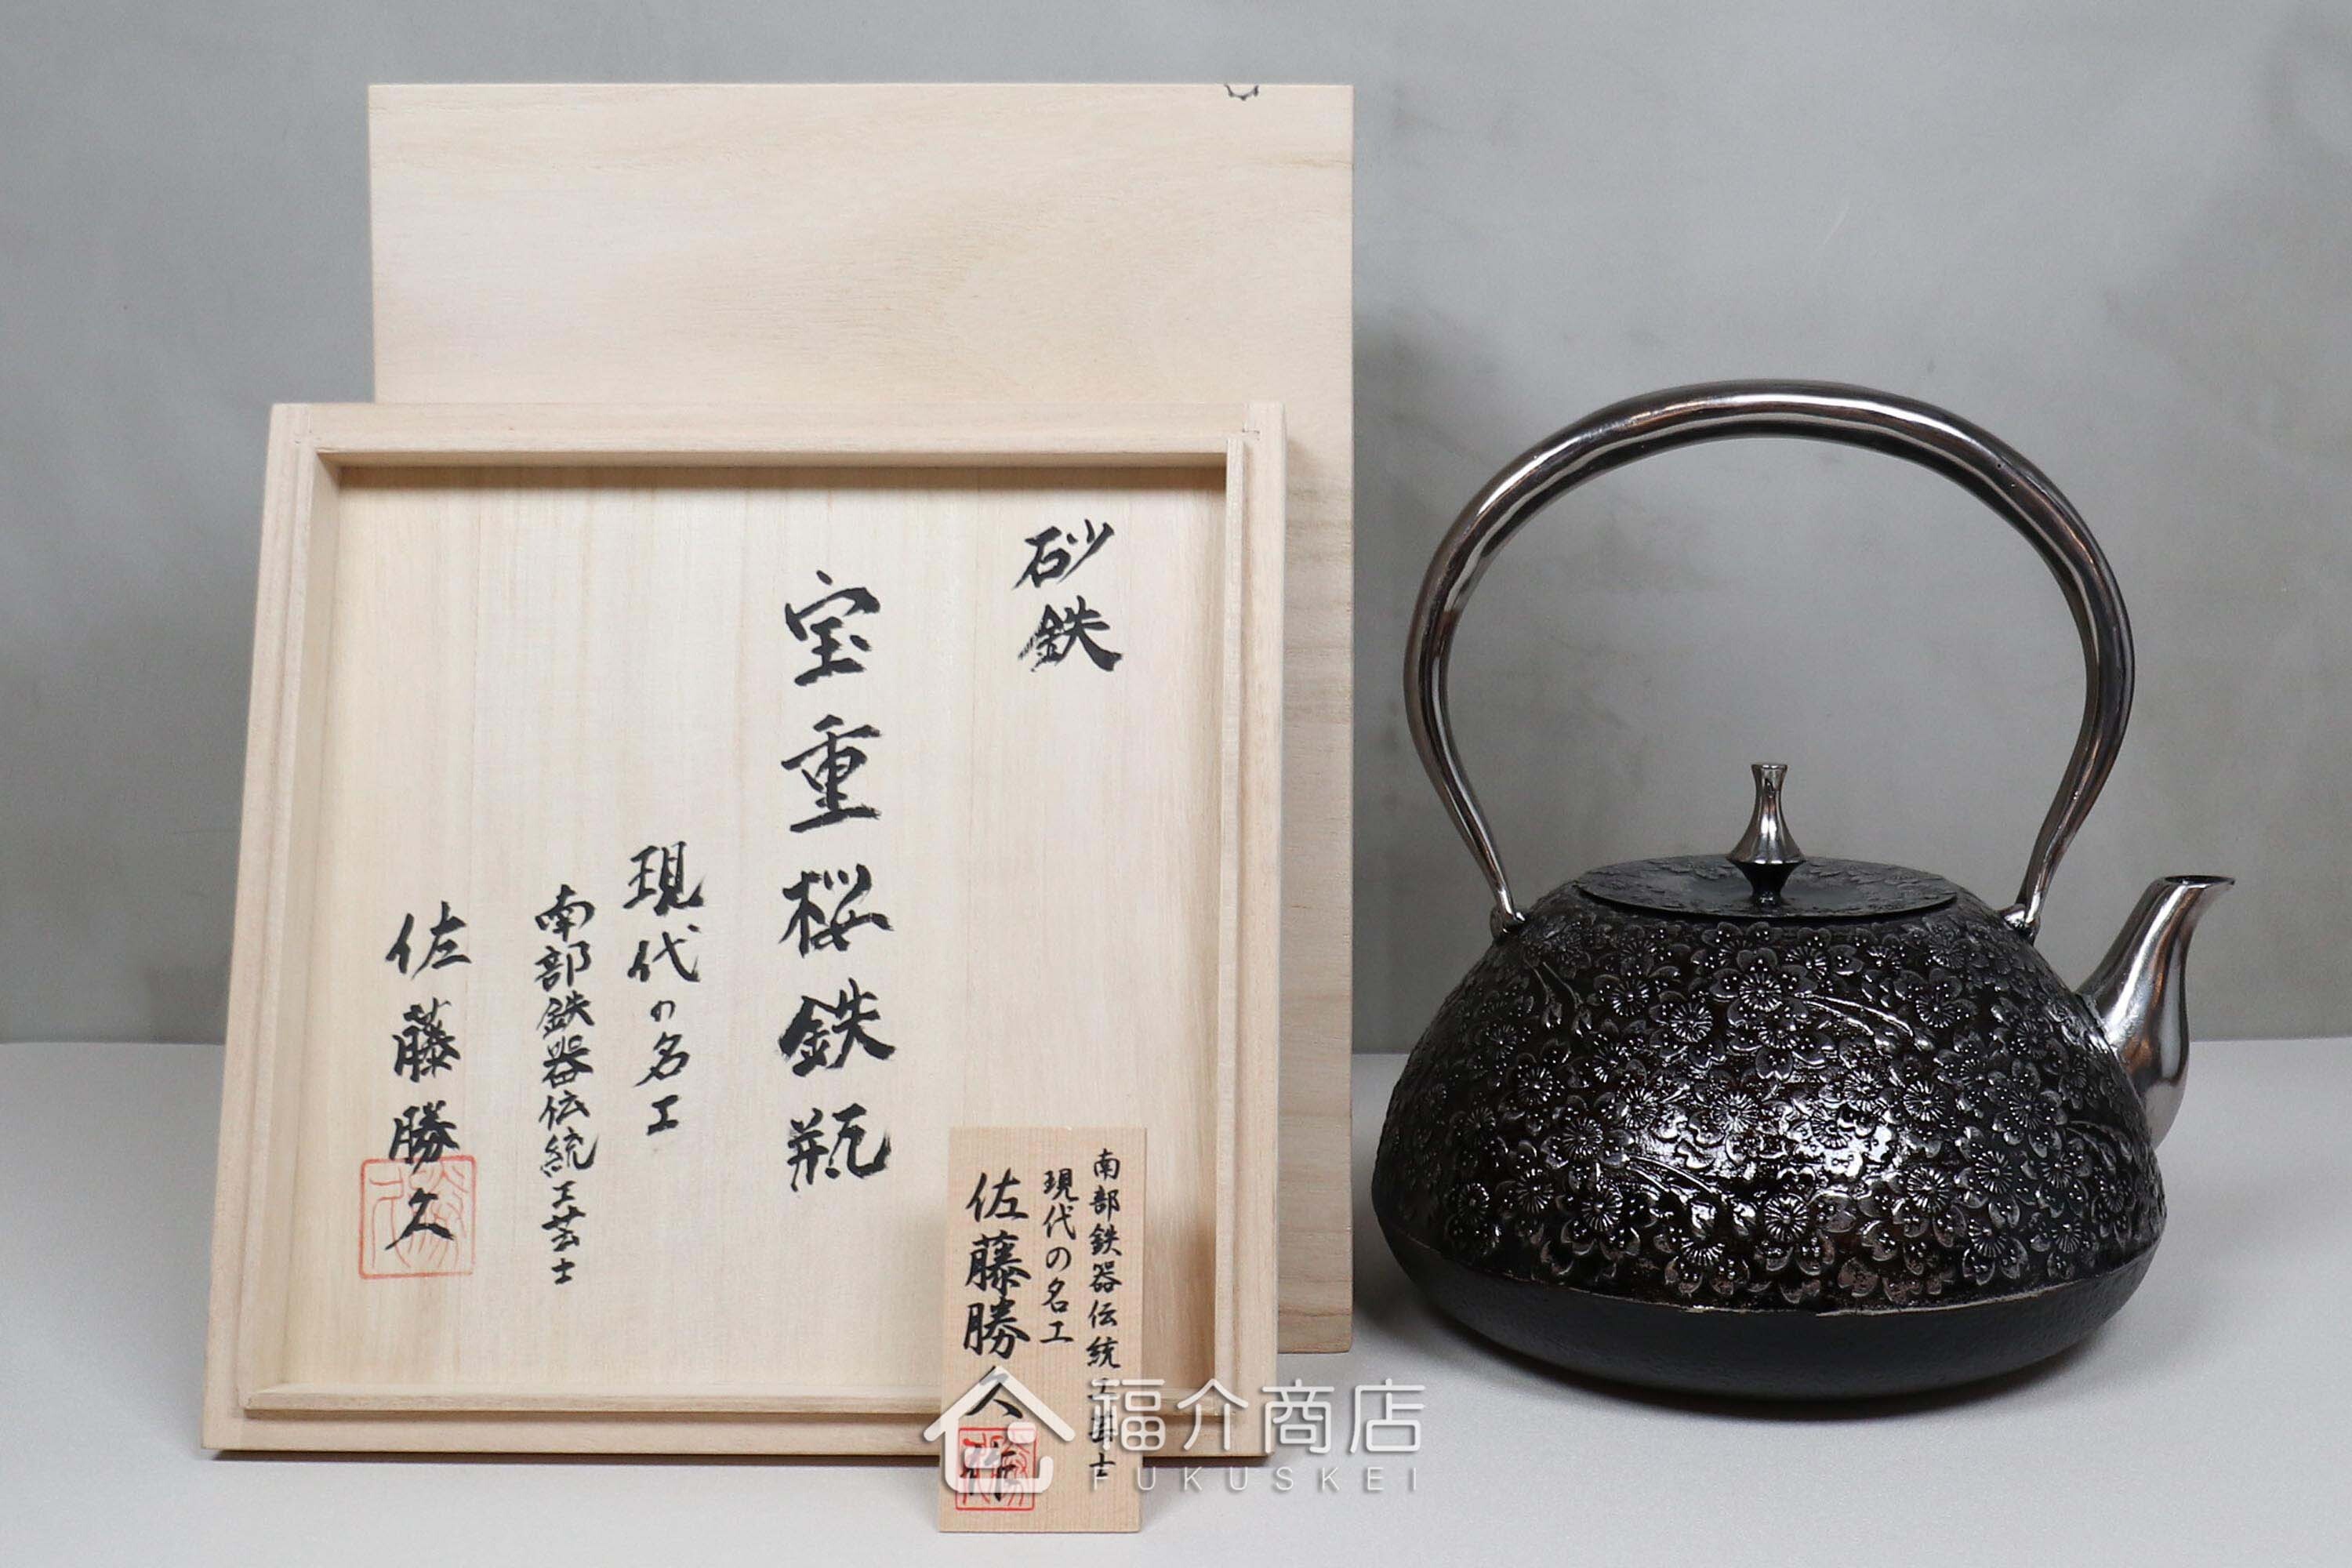 砂鉄
宝珠桜鉄瓶
現代の名工
南部鉄器伝統工芸士
佐藤勝久
南部鉄器伝統工芸士
現代の名工
佐藤勝久作
福介商店
FUKUSKEI